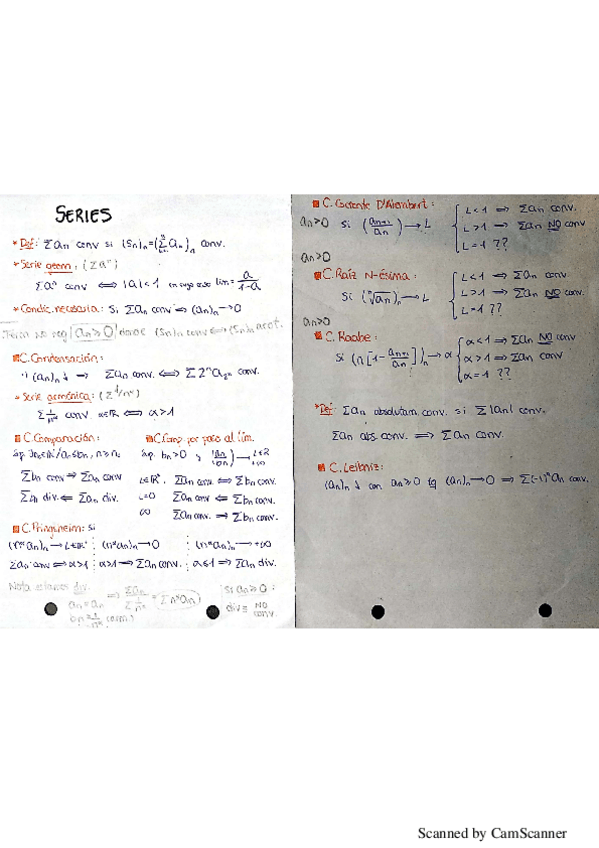 SERIES
* Def: Σan conv si (Sn)n = (Σan)n conv.
* Serie geom: (Σaⁿ)
Σaⁿ conv ⟺ |a| < 1 en cuyo caso lím = a/(1-a)
* Condic. necesaria: Si Σan conv ⟹ (an)n → 0
Térm no neg an ≥ 0 donde (Sn)n conv ⟺ (Sn)n acot.
C. Condensación:
(an)n ↓ → Σan conv. ⟺ Σ2ⁿa₂ₙ conv.
* Serie armónica: (Σ1/n^α)
Σ 1/n^α conv. α∈ℝ ⟺ α > 1
C. Comparación:
Σbn conv ⟹ Σan conv
Σbn div. ⟸ Σan div.
C. Comp por paso al lím.
Sup. bn > 0 y (an/bn) → L∈ℝ ∞
L∈ℝ⁺. Σan conv ⟺ Σbn conv.
L=0 Σan conv ⟸ Σbn conv.
∞ Σan conv. ⟹ Σbn conv.
C. Pringsheim: Si
(n^α an)n → L∈ℝ⁺ (n^α an) → 0 (n^α an)n → +∞
Σan conv ⟺ α > 1 α > 1 ⟹ Σan conv. α ≤ 1 ⟹ Σan div.
Nota estamos div.
an = an
bn = 1/n^α (arm.)
⟹ Σan / Σ1/n^α = Σn^α an
Si an ≥ 0:
div ≡ NO conv.
C. Cociente D'Alembert:
an > 0 Si (an+1/an) → L
L < 1 ⟹ Σan conv.
L > 1 ⟹ Σan NO conv
L = 1 ??
an > 0
C. Raíz N-ésima:
Si (ⁿ√an)n → L
L < 1 ⟹ Σan conv.
L > 1 ⟹ Σan NO conv.
L = 1 ??
an > 0
C. Raabe:
Si (n[1 - an+1/an])n → α
α < 1 ⟹ Σan NO conv
α > 1 ⟹ Σan conv
α = 1 ??
* Def: Σan absolutam. conv. si Σ|an| conv.
Σan abs conv. ⟹ Σan conv.
C. Leibniz:
(an)n ↓ con an ≥ 0 tq (an)n → 0 ⟹ Σ(-1)ⁿan conv.
Scanned by CamScanner